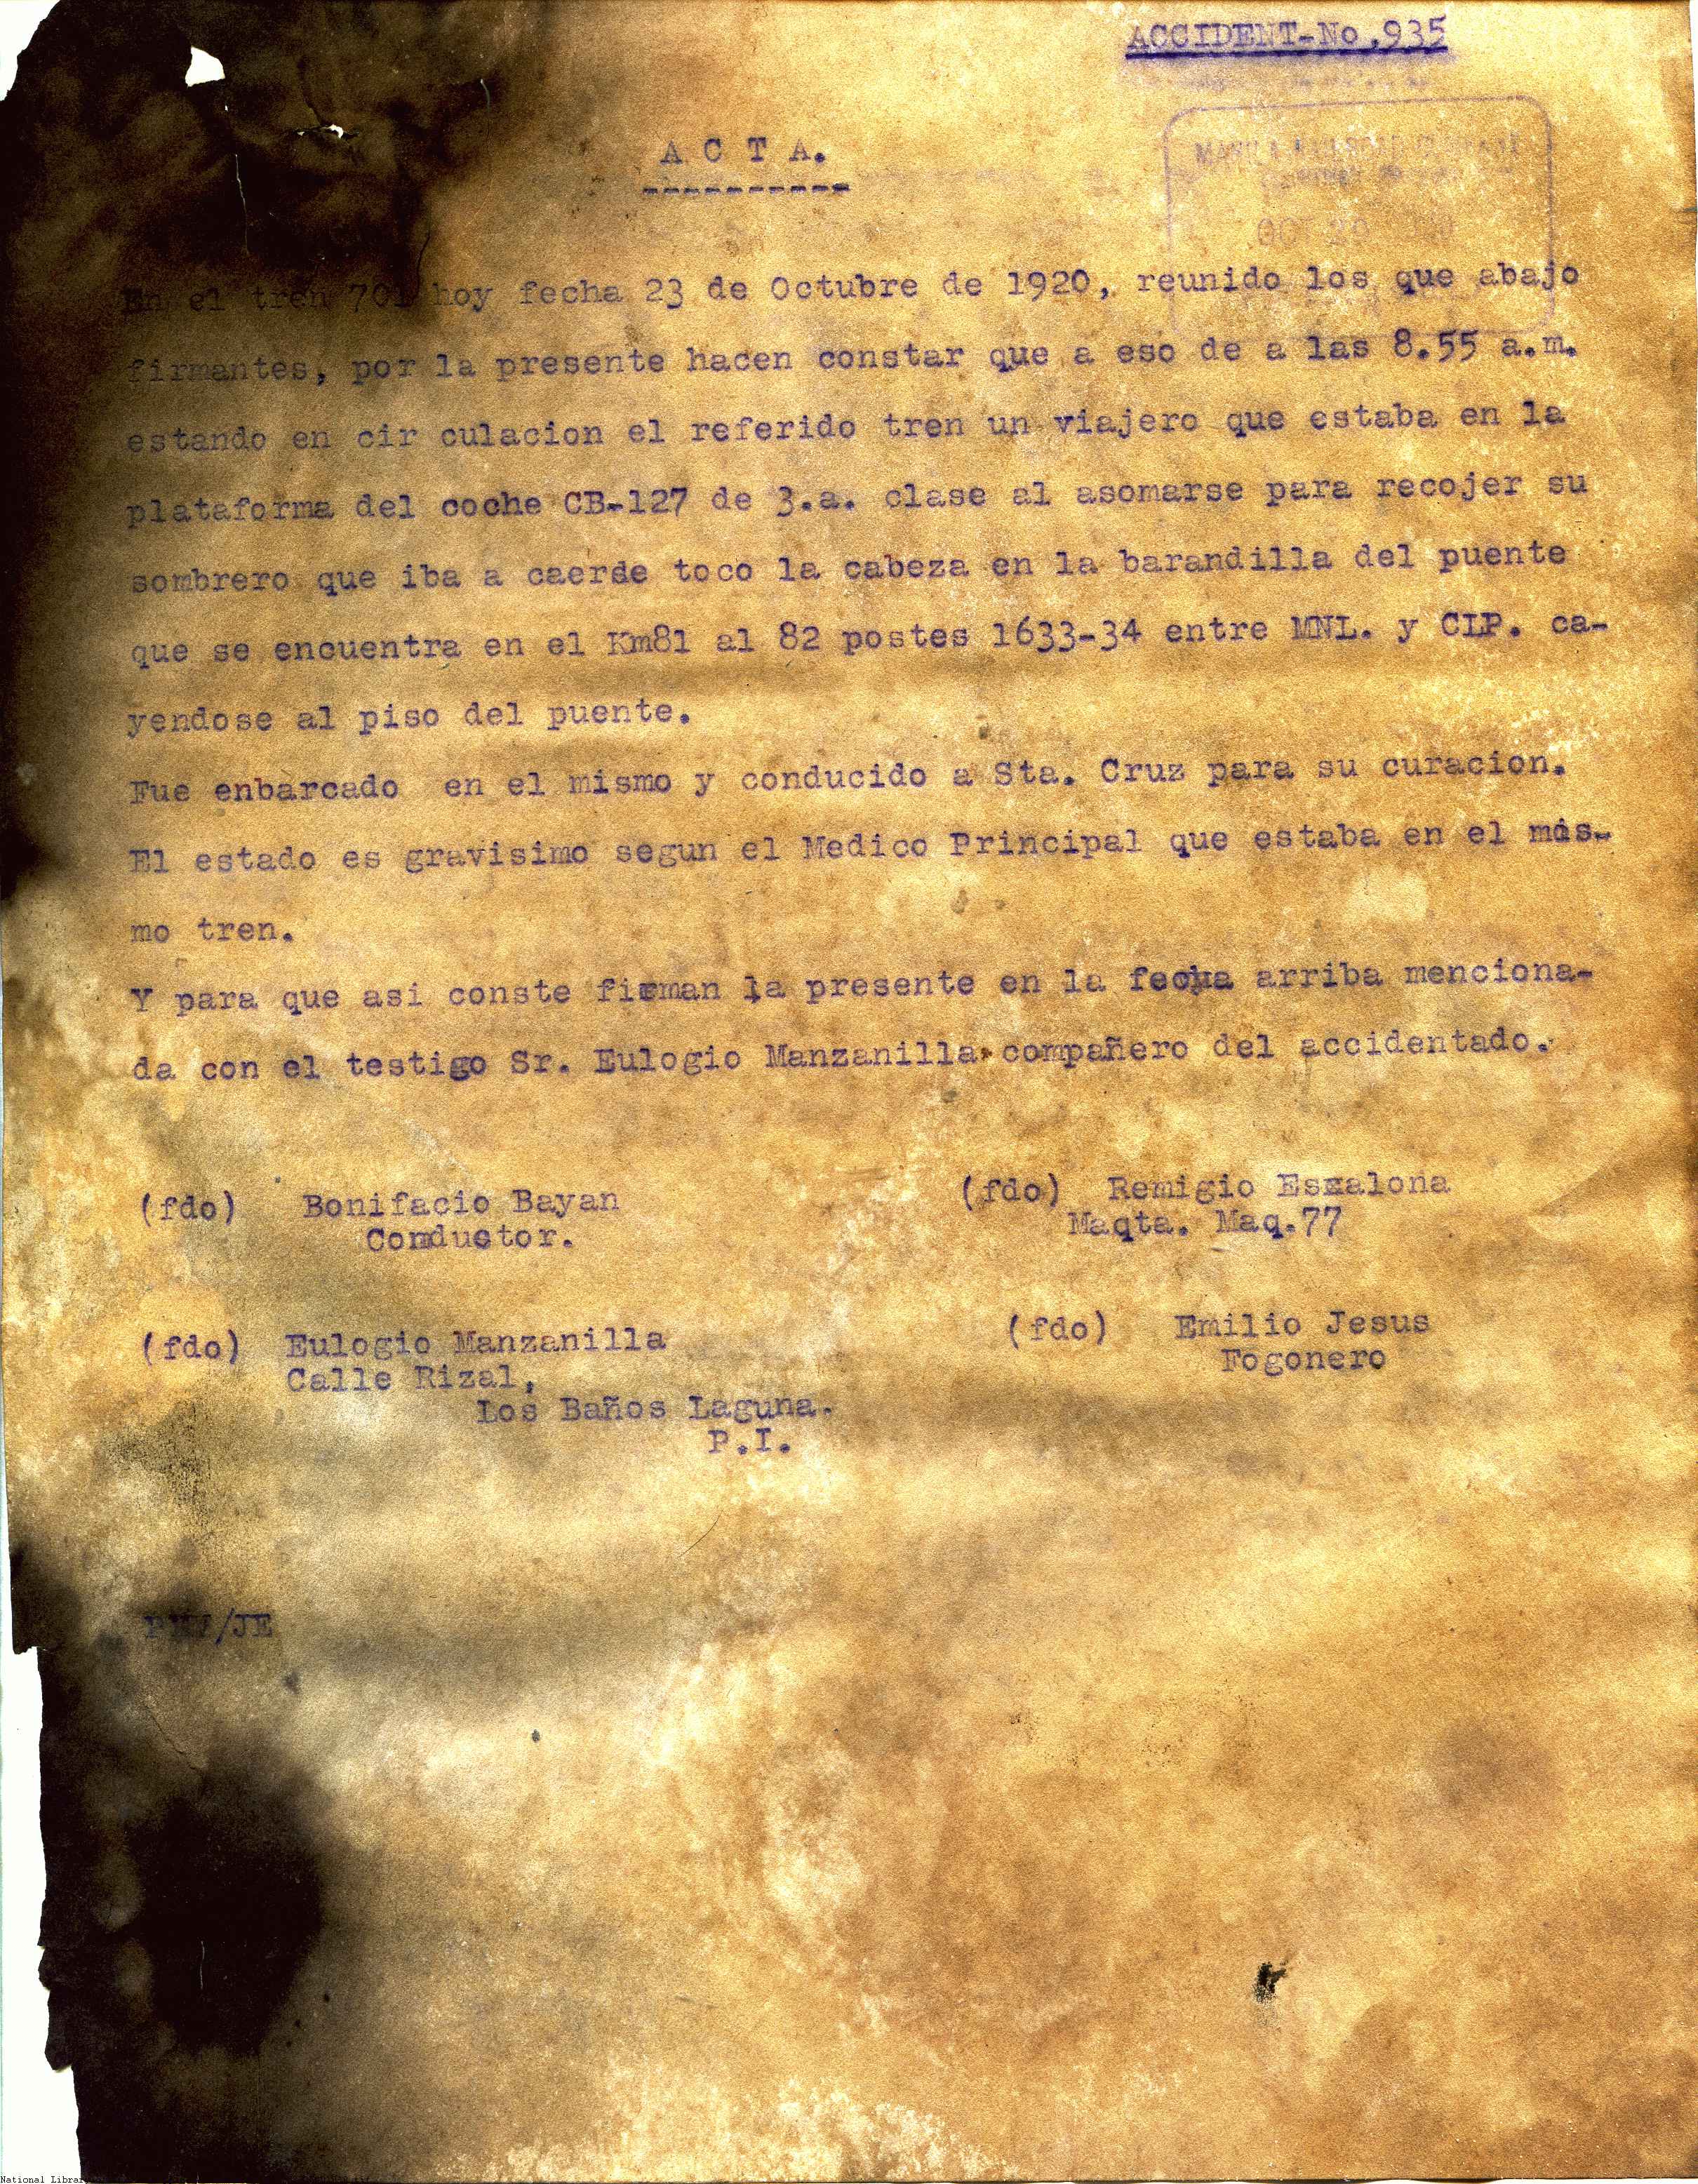 ACCIDENT-No.935
A C T A.
----------
OCT
En el tren 701 hoy fecha 23 de Octubre de 1920, reunido los que abajo
firmantes, por la presente hacen constar que a eso de a las 8.55 a.m.
estando en cir culacion el referido tren un viajero que estaba en la
plataforma del coche CB-127 de 3.a. clase al asomarse para recojer su
sombrero que iba a caerse toco la cabeza en la barandilla del puente
que se encuentra en el Km81 al 82 postes 1633-34 entre MNL. y CIP. ca-
yendose al piso del puente.
Fue enbarcado en el mismo y conducido a Sta. Cruz para su curacion.
El estado es gravisimo segun el Medico Principal que estaba en el mis-
mo tren.
Y para que asi conste firman la presente en la fecha arriba menciona-
da con el testigo Sr. Eulogio Manzanilla compañero del accidentado.
(fdo) Bonifacio Bayan
Conductor.
(fdo) Remigio Escalona
Maqta. Maq.77
(fdo) Eulogio Manzanilla
Calle Rizal,
Los Baños Laguna.
P.I.
(fdo) Emilio Jesus
Fogonero
/JE
National